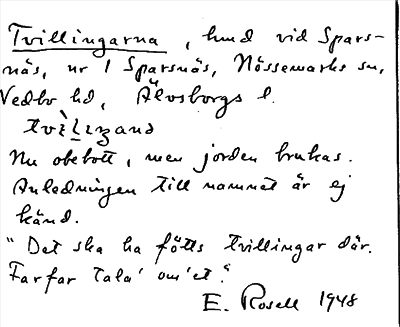 Tvillingarna, hmd vid Spars-
näs, nr 1 Sparsnäs, Nössemarks sn,
Vedbo hd, Älvsborgs l.
Nu obebott, men jorden brukas.
Anledningen till namnet är ej
känd.
"Det ska ha fötts tvillingar där.
Farfar tala' om'et."
E. Rosell 1948